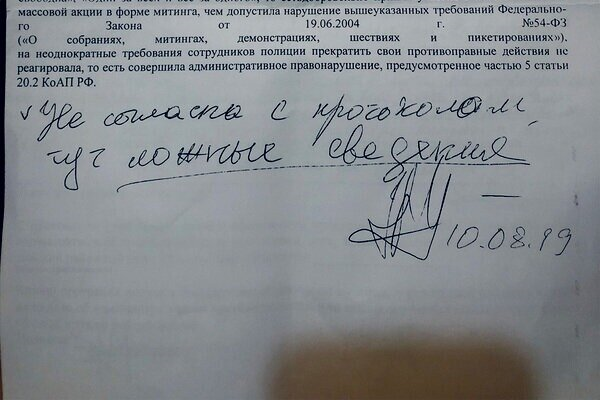 массовой акции в форме митинга, чем допустила нарушение вышеуказанных требований Федерально-
го Закона от 19.06.2004 г. №54-ФЗ
(«О собраниях, митингах, демонстрациях, шествиях и пикетированиях»),
на неоднократные требования сотрудников полиции прекратить свои противоправные действия не
реагировала, то есть совершила административное правонарушение, предусмотренное частью 5 статьи
20.2 КоАП РФ.
Не согласна с протоколом,
тут ложные сведения
10.08.19